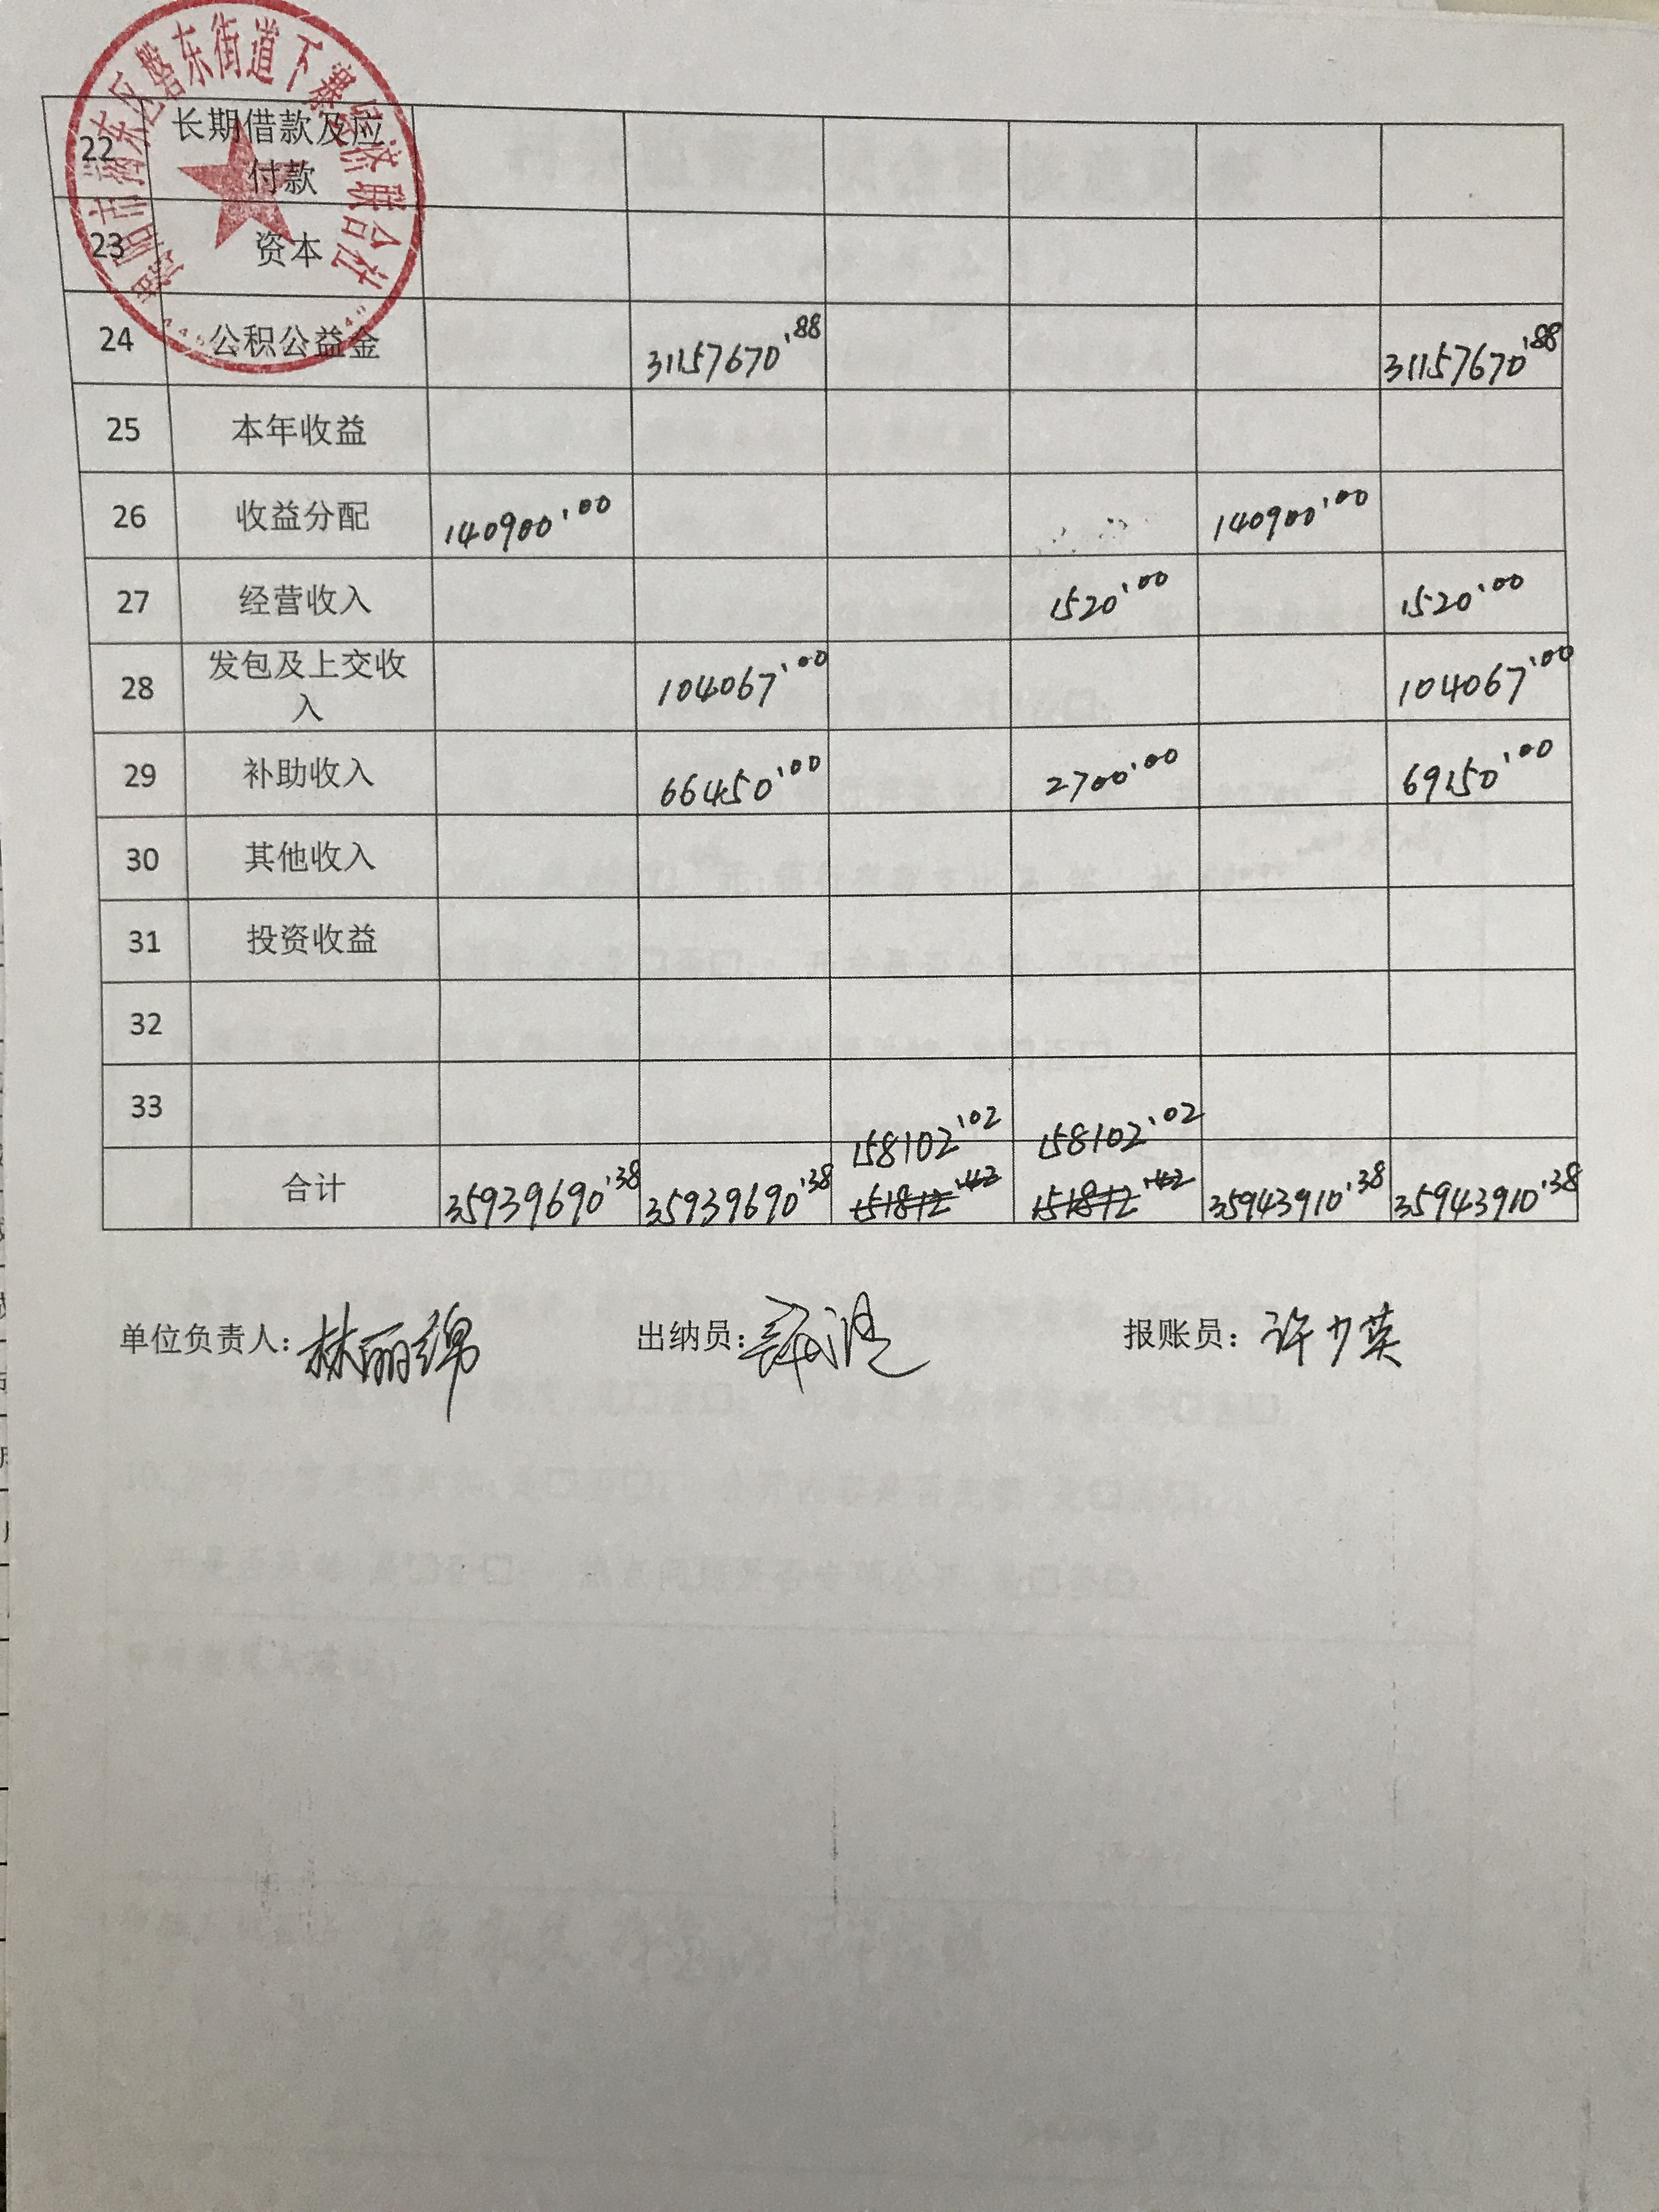 揭阳市揭东区磐东街道下寨经济联合社
22 长期借款及应
付款
23 资本
24 公积公益金 31157670.88 31157670.88
25 本年收益
26 收益分配 140900.00 140900.00
27 经营收入 1520.00 1520.00
28 发包及上交收
入 104067.00 104067.00
29 补助收入 66450.00 2700.00 69150.00
30 其他收入
31 投资收益
32
33
158102.02 158102.02
合计 35939690.38 35939690.38 151812.42 151812.42 35943910.38 35943910.38
单位负责人：林丽绵 出纳员： 报账员：许少英